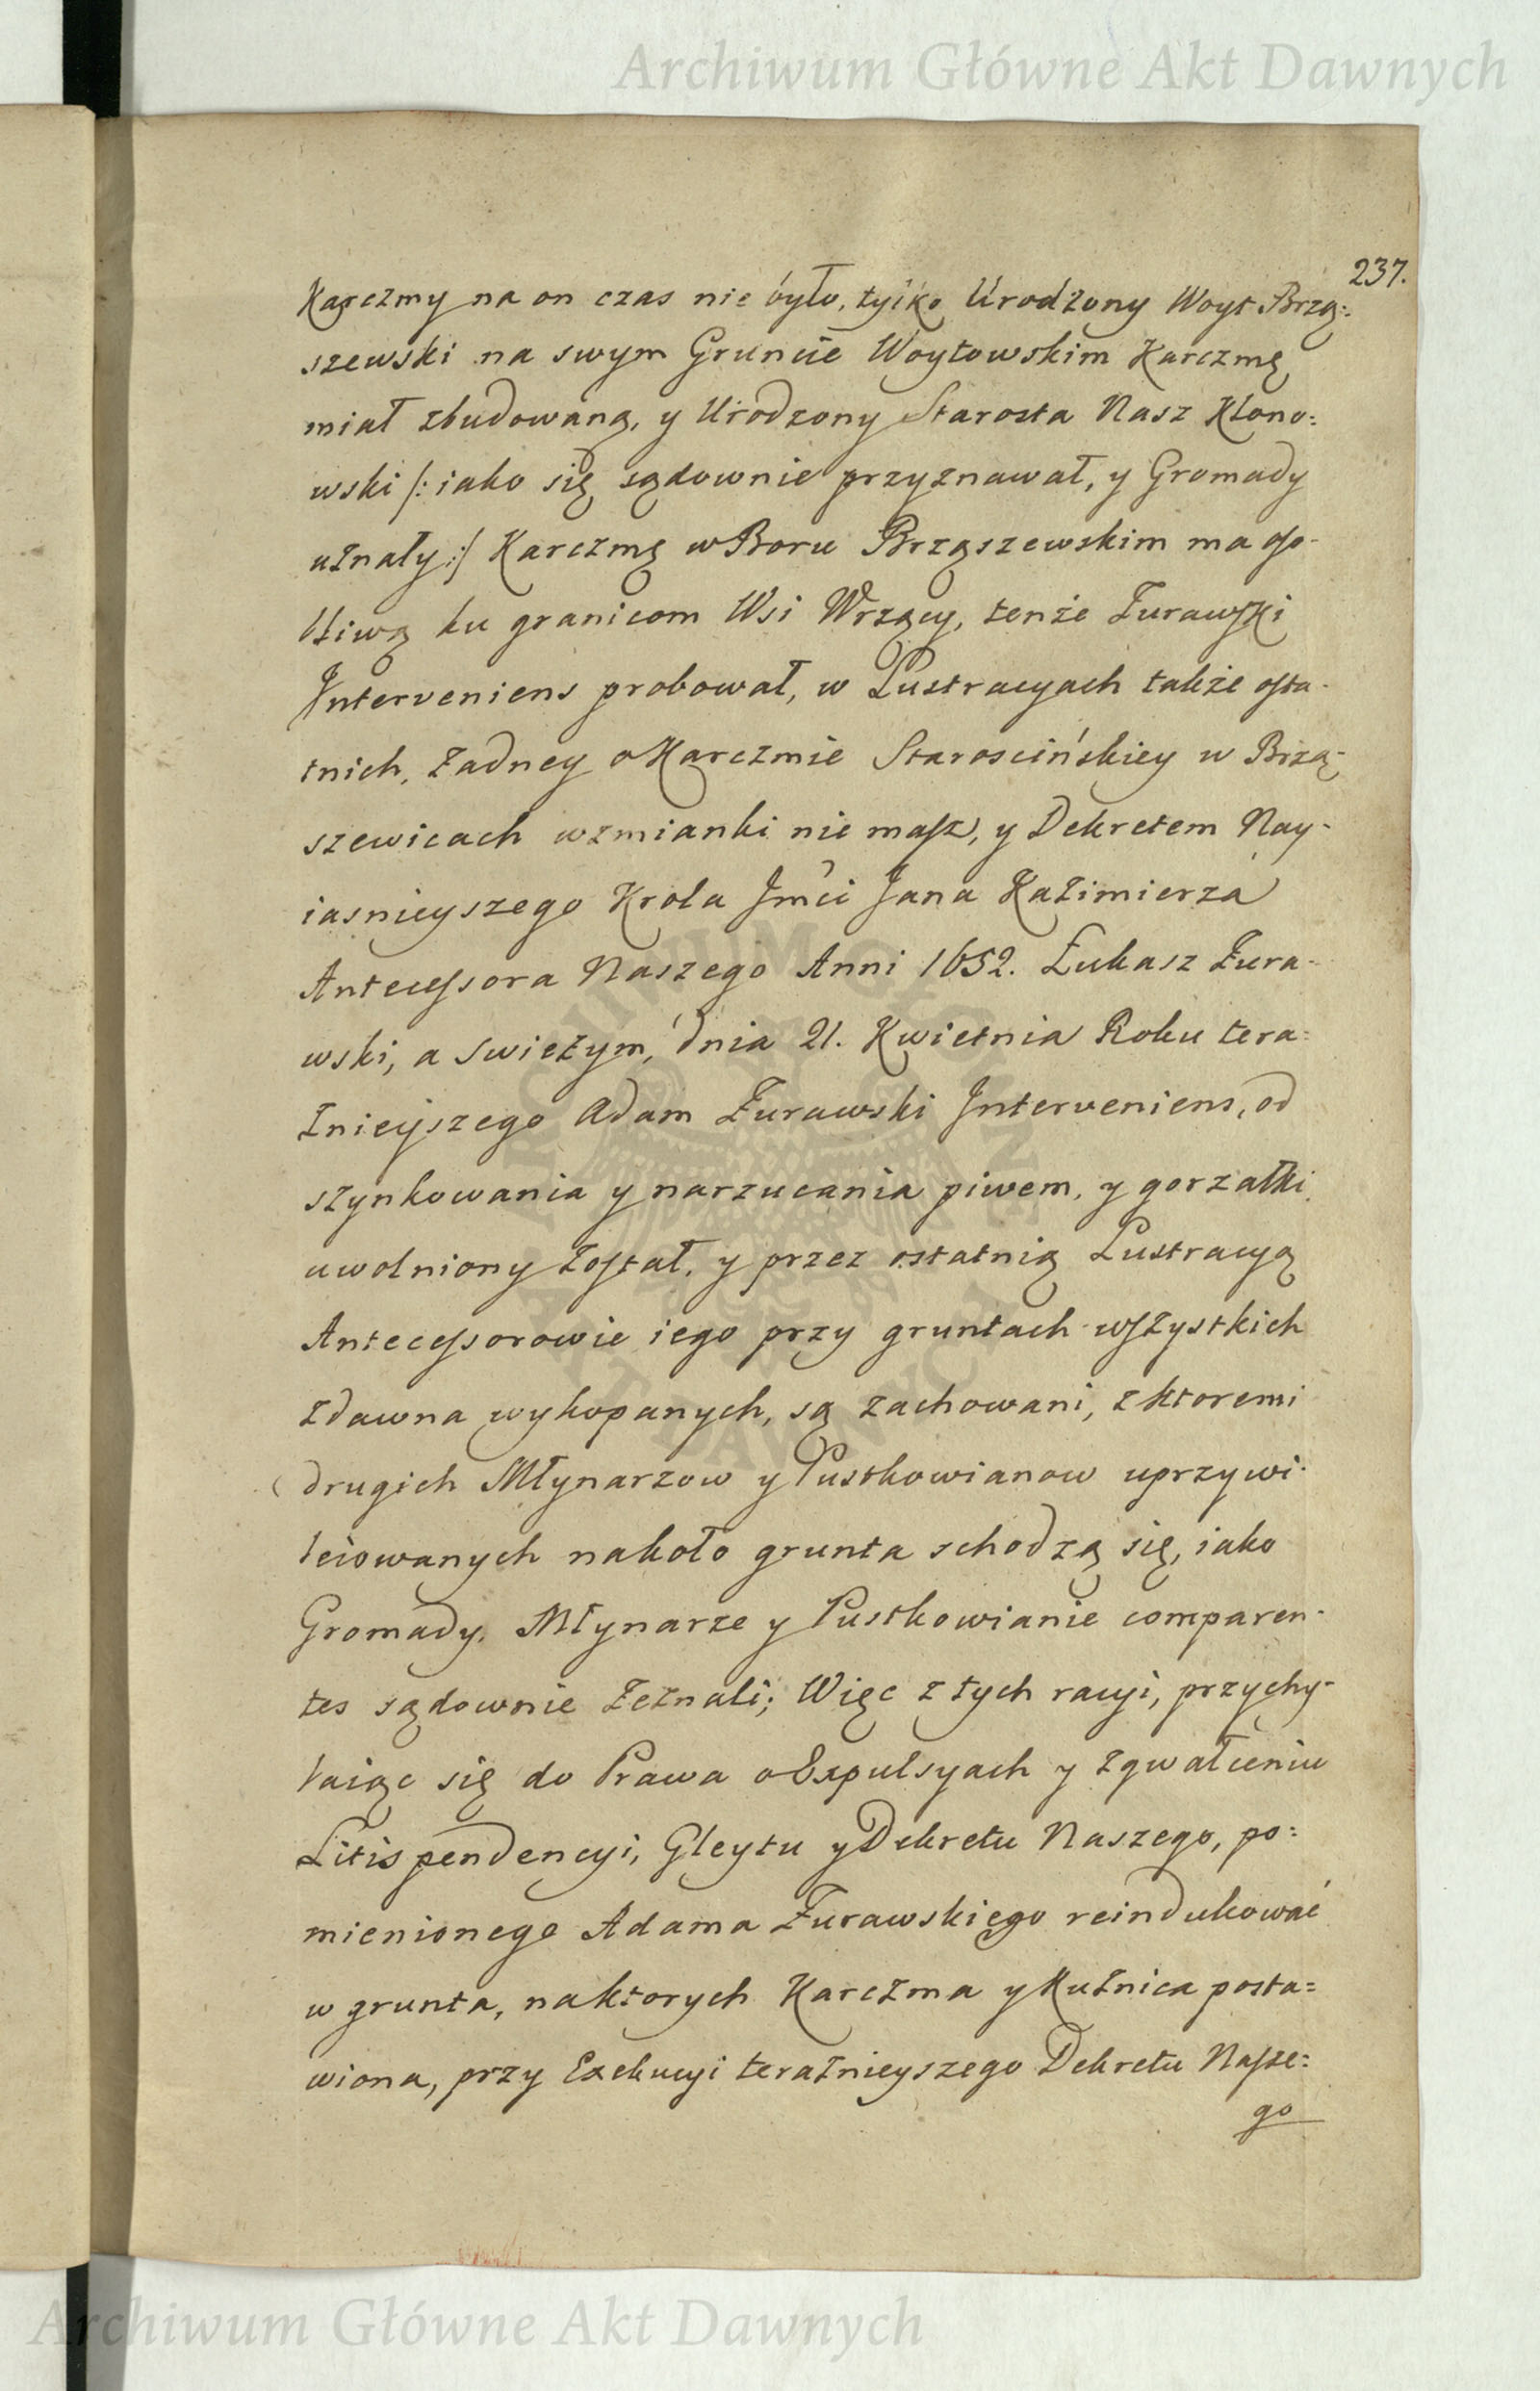 Archiwum Główne Akt Dawnych
237.
Karczmy na on czas nie było, tylko Urodzony Woyt Brzą:
szewski na swym Gruncie Woytowskim Karczmę
miał zbudowaną, y Urodzony Starosta Nasz Klono:
wski /: iako się sądownie przyznawał, y Gromady
uznały :/ Karczmę w Boru Brząszewskim ma go-
łliwą ku granicom Wsi Wrzący, tenże Żurawski
Interveniens probował, w Lustracyach także osta-
tnich, żadney o Karczmie Starościńskiey w Brzą-
szewicach wzmianki nie masz, y Dekretem Nay-
iasnieyszego Krola Jmći Jana Kaźimierza
Antecessora Naszego Anni 1652. Łukasz Żura-
wski, a swieżym, dnia 21. Kwietnia Roku tera:
żnieyszego Adam Żurawski Interveniens, od
szynkowania y narzucania piwem, y gorzałki,
uwolniony został, y przez ostatnią Lustracyą
Antecessorowie iego przy gruntach wszystkich
zdawna wykopanych, są zachowani, z ktoremi
drugich Młynarzow y Pustkowianow uprzywi-
leiowanych nakoło grunta schodzą się, iako
Gromady, Młynarze y Pustkowianie comparen-
tes sądownie zeznali; Więc z tych racyi, przychy-
laiąc się do Prawa o Expulsyach y zgwałceniu
Litispendencyi, Gleytu y Dekretu Naszego, po:
mienionego Adama Żurawskiego reindukować
w grunta, na ktorych Karczma y Kuźnica posta=
wiona, przy Exekucyi teraźnieyszego Dekretu Nasze:
go
Archiwum Główne Akt Dawnych